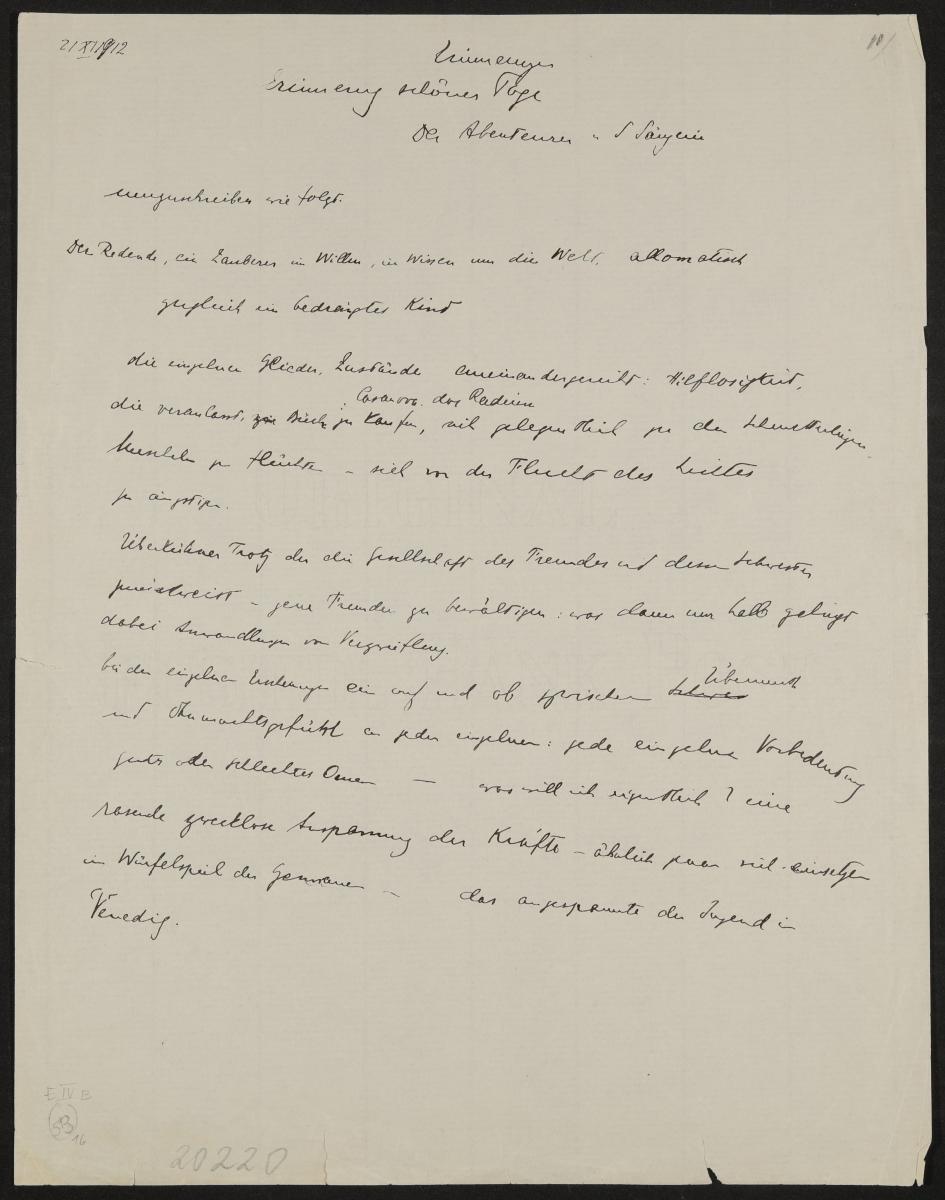 21 XI 1912
10/
Erinnerung schöner Tage
Der Abenteurer u. d Sängerin
umzuschreiben wie folgt.
Der Redende, ein Zauberer im Willen, im Wissen um die Welt. allomatisch
zugleich ein bedrängtes Kind
die einzelnen Glieder, Zustände aneinandergereiht: Hilflosigkeit,
Casanova. das Radieren
die veranlasst, zu kaufen, sich gelegentlich zu den
zu flüchten – sich vor der Flucht des Lichtes
zu ängstigen.
Überkühner Trotz der die Gesellschaft des Fremden und dessen Schwester
– jene Fremden zu bewältigen: was dann nur halb gelingt
dabei Anwandlungen von Verzweiflung.
Übermuth
bei den einzelnen ein auf und ab zwischen
und Ohnmachtsgefühl an jeden einzelnen: jede einzelne Vorbedeutung
gutes oder schlechtes Omen — was will ich eigentlich? eine
rasende zwecklose Anspannung der Kräfte – ähnlich sich einsetzen
im Würfelspiel der Germanen – das angespannte der Jugend in
Venedig.
E IV B
53
16
20220